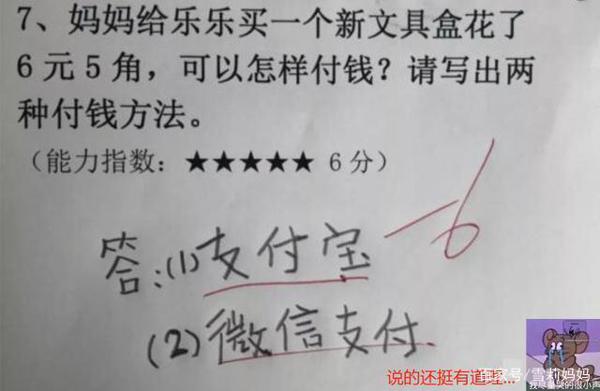 7、妈妈给乐乐买一个新文具盒花了
6元5角，可以怎样付钱？请写出两
种付钱方法。
（能力指数：★★★★★ 6分）
答：(1)支付宝
-6
(2)微信支付.
说的还挺有道理...
雪莉妈妈